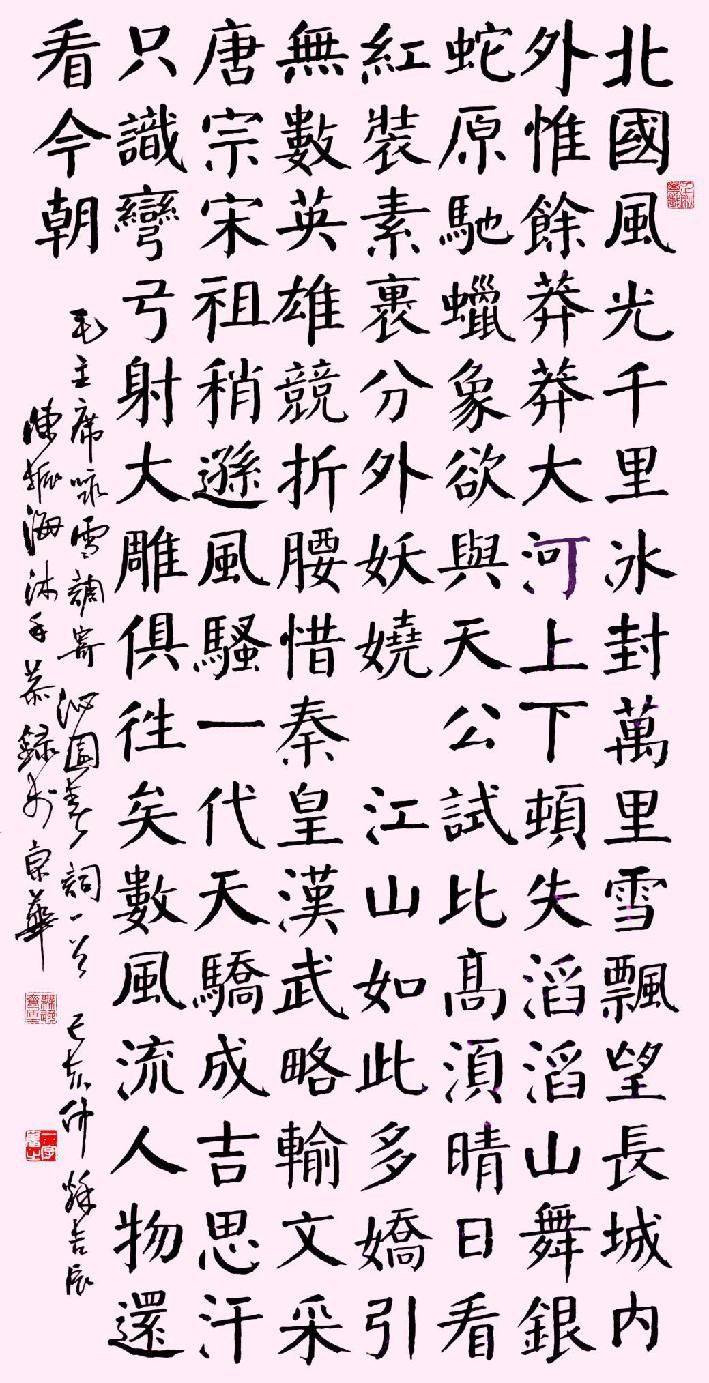 北國風光千里冰封萬里雪飄望長城内
外惟餘莽莽大河上下頓失滔滔山舞銀
蛇原馳蠟象欲與天公試比髙湏晴日看
紅裝素裹分外妖嬈 江山如此多嬌引
無數英雄競折腰惜秦皇漢武略輸文采
唐宗宋祖稍遜風騷一代天驕成吉思汗
只識彎弓射大雕俱徃矣數風流人物還
看今朝
毛主席咏雪調寄沁園春詞一首 己亥仲秋吉辰
陳振海沐手恭録於京華